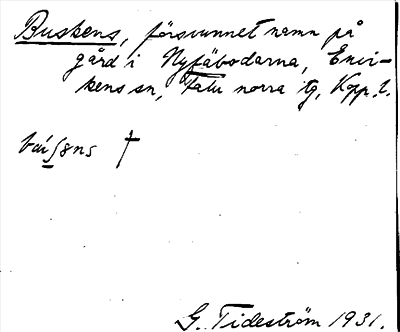 Buskens, försvunnet namn på
gård i Nyfäbodarna, Envi-
kens sn, Falu norra tg, Kopp. l.
†
G. Tideström 1931.